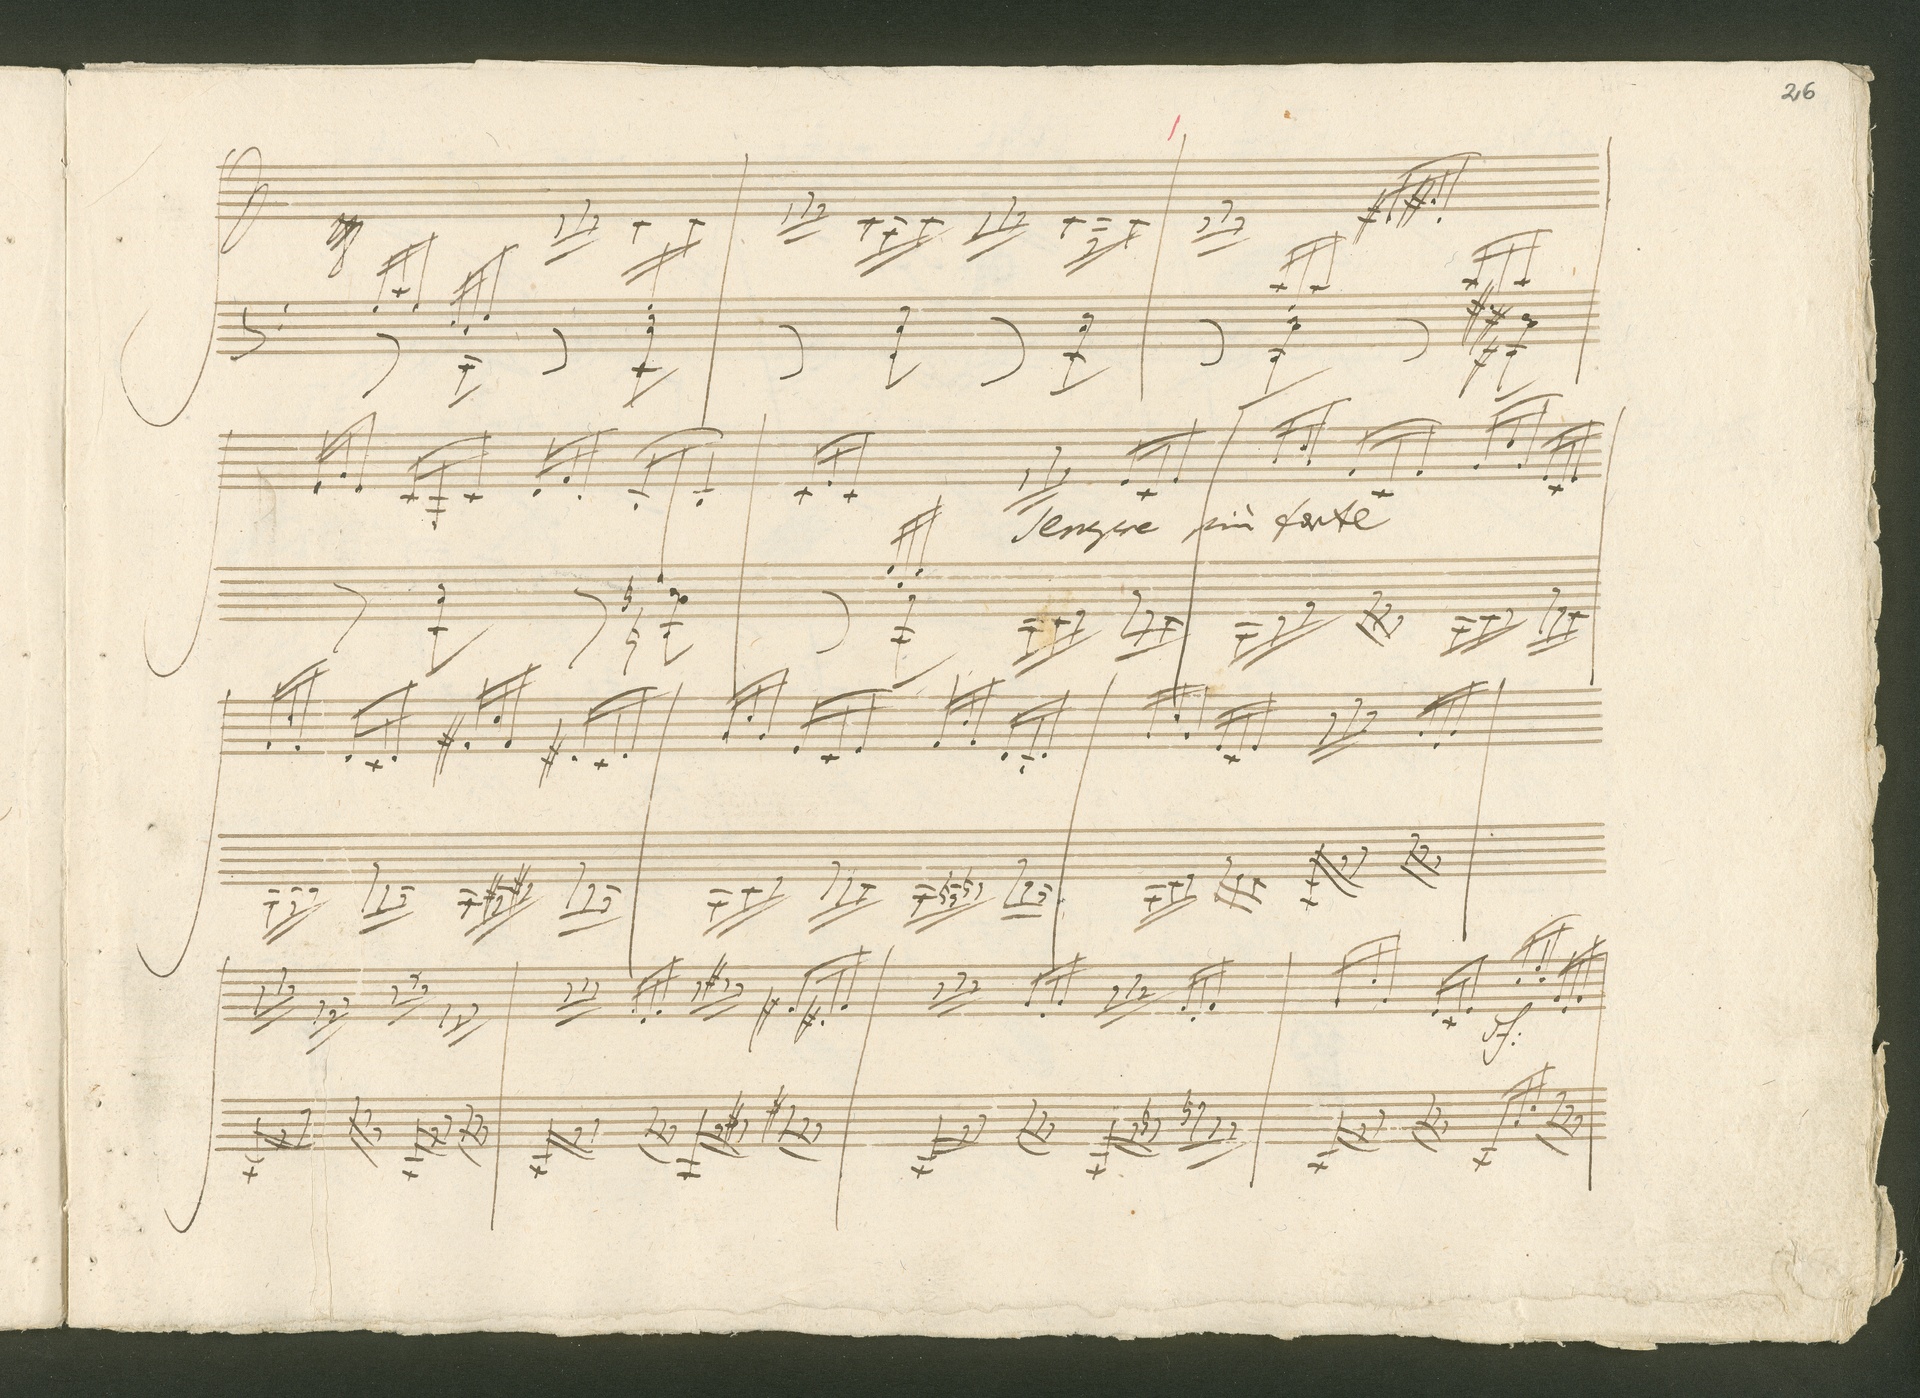 26
Sempre più forte
sf: